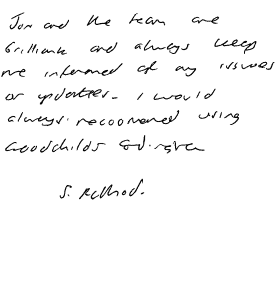 Jon and the team are
brilliant and always keep
me informed of any issues
or updates. I would
always recoomened using
Goodchilds
S.